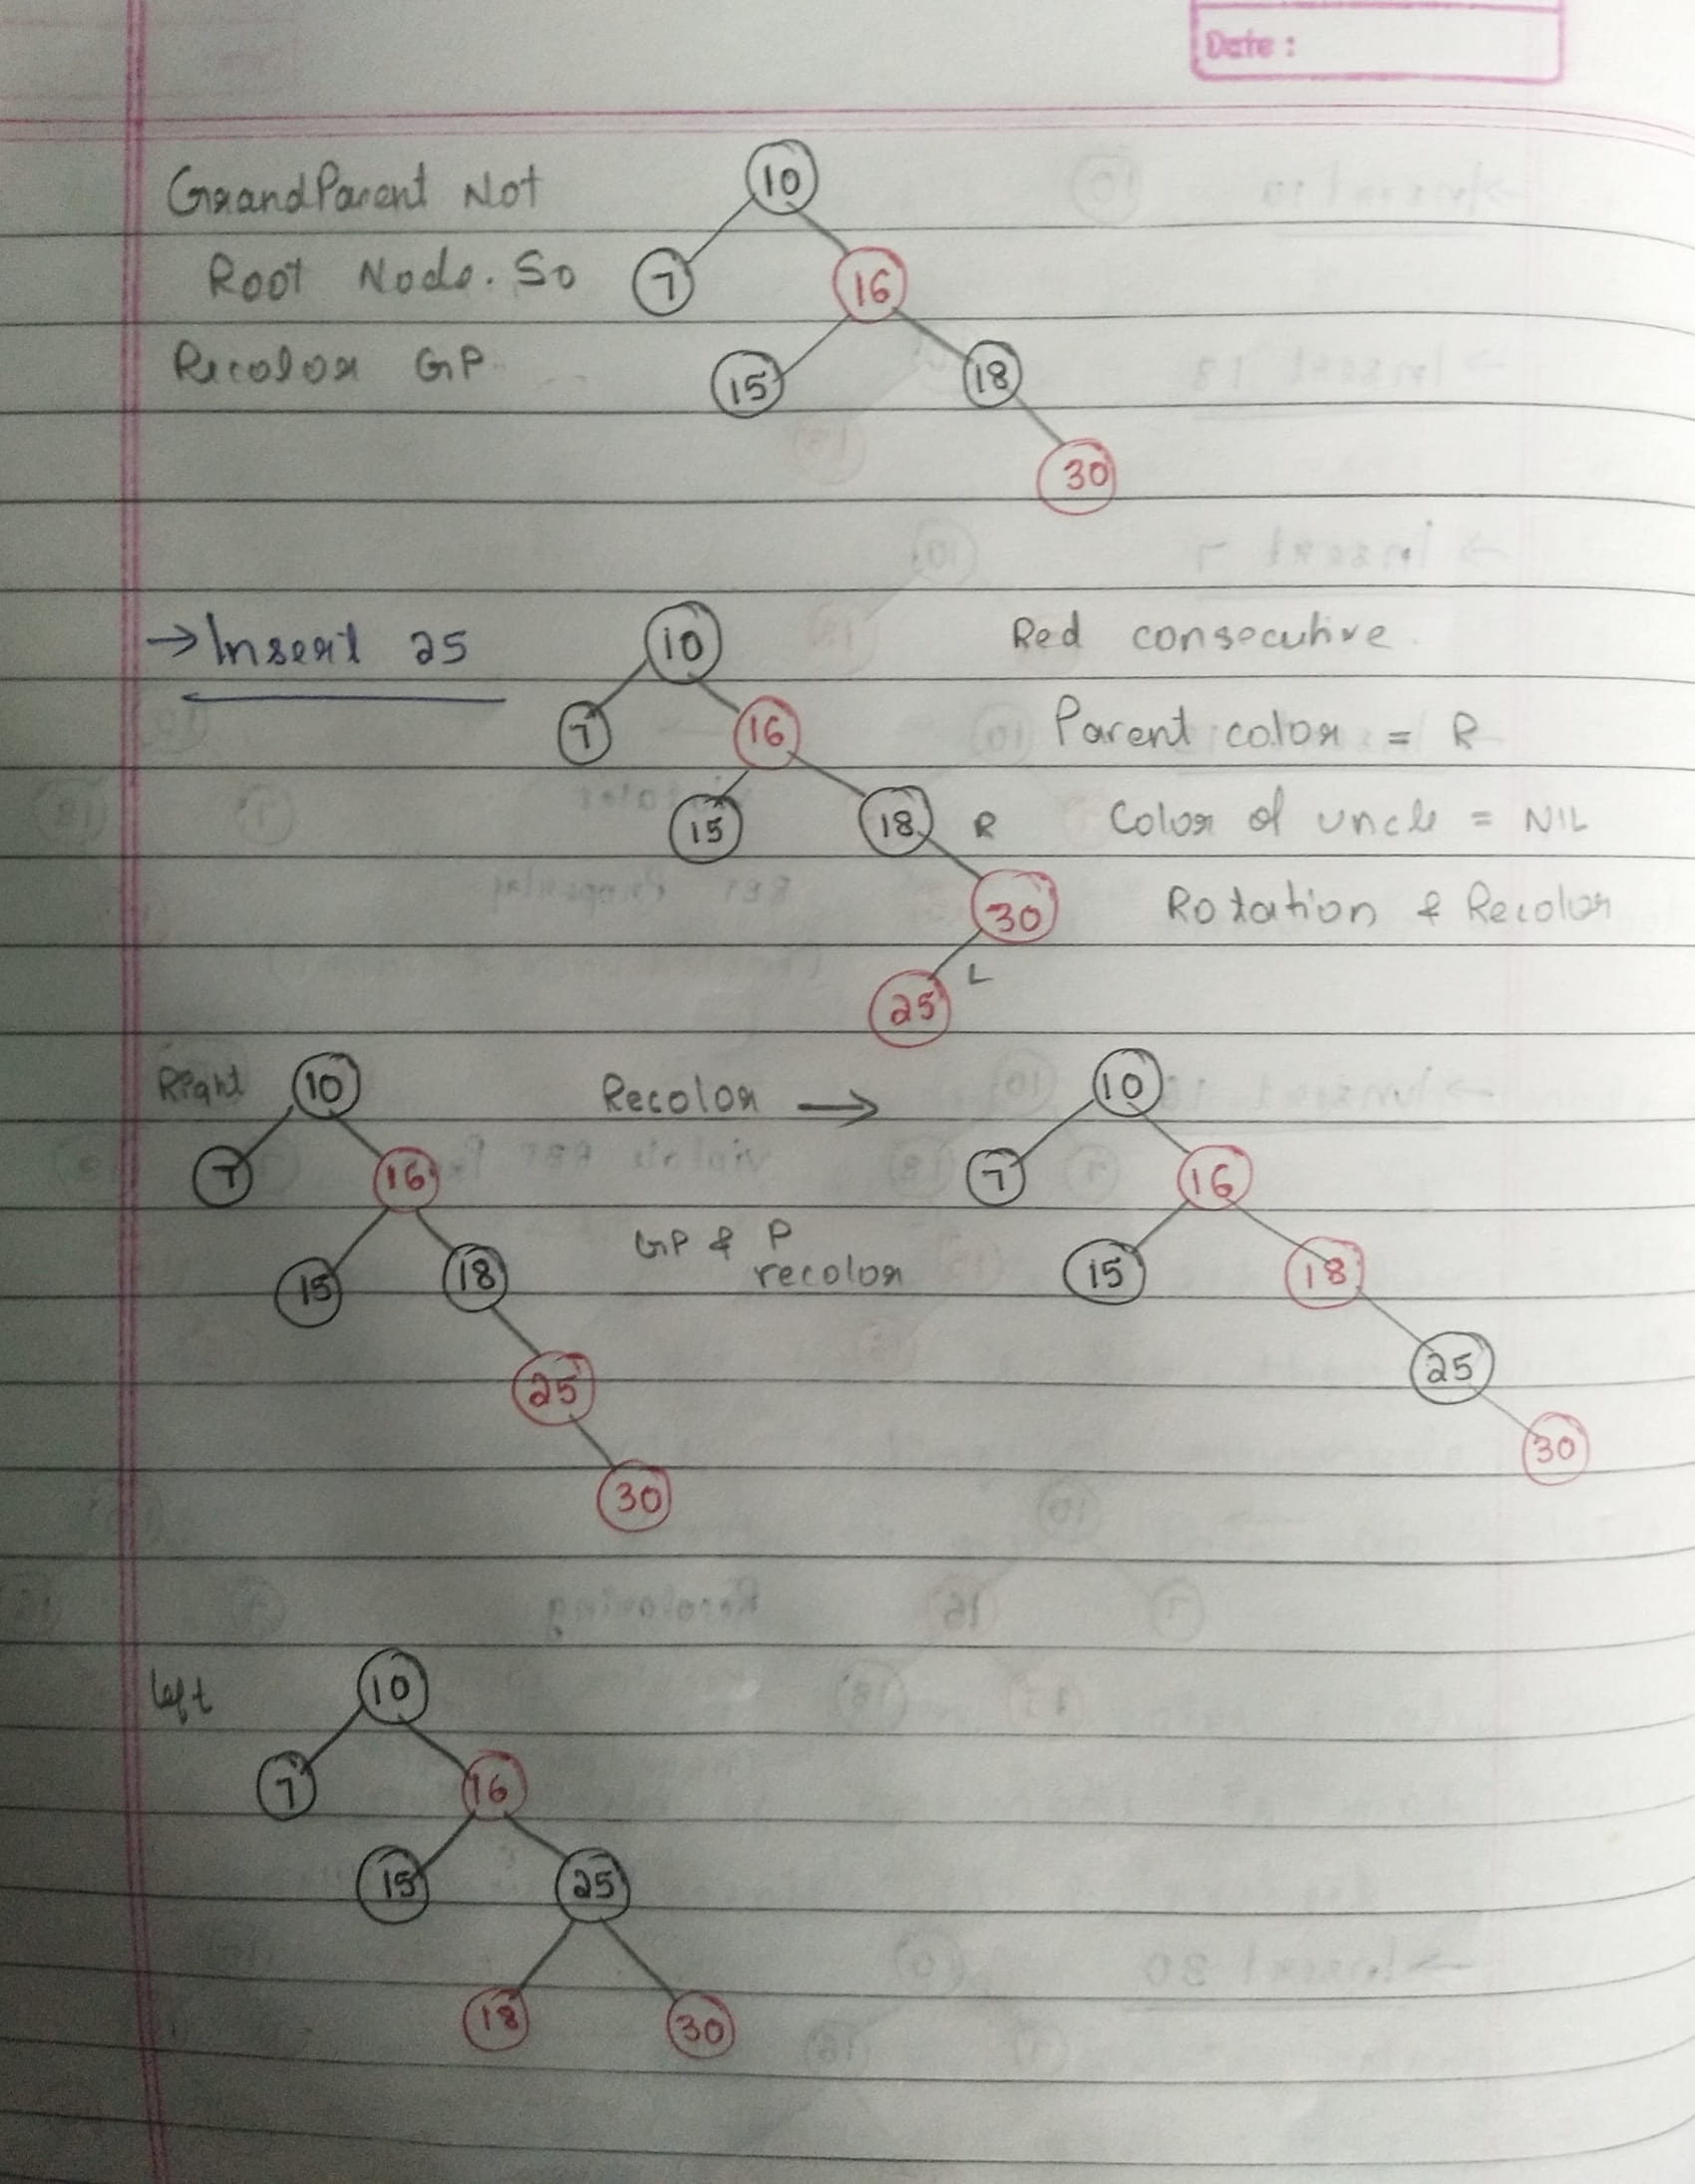 Date :
GrandParent Not
Root Node. So
Recolor GP.
10
7 16
15 18
30
→ Insert 25
Red consecutive.
Parent color = R
Color of uncle = NIL
Rotation & Recolor
10
7 16
15 18 R
30
L
25
Right
10
7 16
15 18
25
30
Recolor →
GP & P
recolor
10
7 16
15 18
25
30
left
10
7 16
15 25
18 30